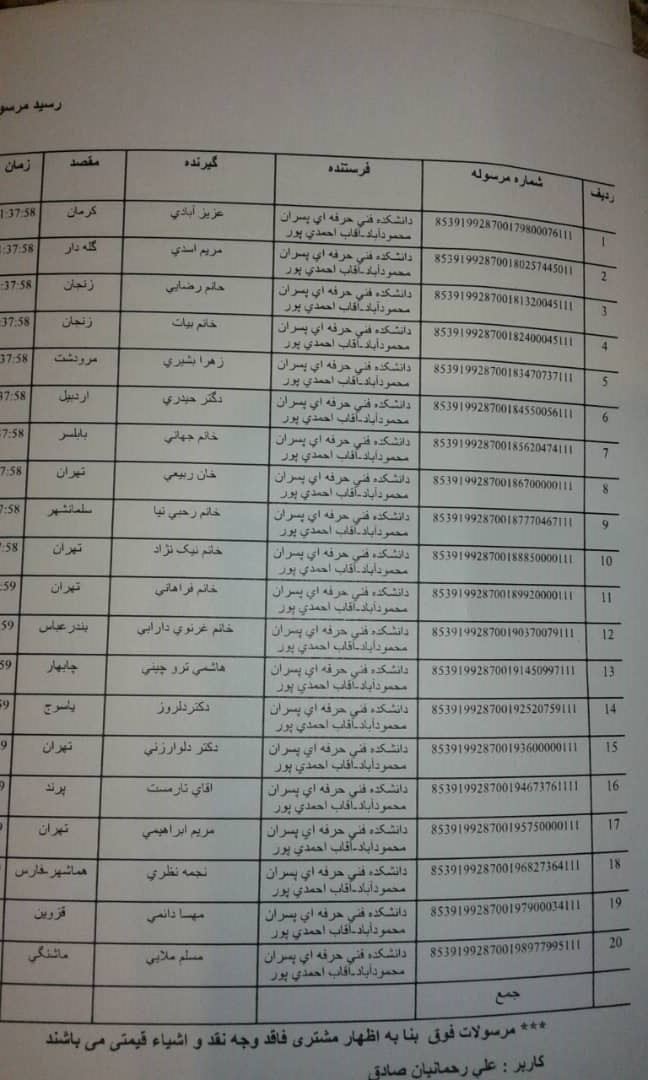 رسید مرسو
ردیف شماره مرسوله فرستنده گیرنده مقصد زمان
1 853919928700179800076111 دانشکده فني حرفه اي پسران محمودآباد-آقاب احمدي پور عزیز آبادي کرمان 1:37:58
2 853919928700180257445011 دانشکده فني حرفه اي پسران محمودآباد-آقاب احمدي پور مریم اسدي گله دار 1:37:58
3 853919928700181320045111 دانشکده فني حرفه اي پسران محمودآباد-آقاب احمدي پور خانم رضایي زنجان :37:58
4 853919928700182400045111 دانشکده فني حرفه اي پسران محمودآباد-آقاب احمدي پور خانم بیات زنجان :37:58
5 853919928700183470737111 دانشکده فني حرفه اي پسران محمودآباد-آقاب احمدي پور زهرا بشیري مرودشت 37:58
6 853919928700184550056111 دانشکده فني حرفه اي پسران محمودآباد-آقاب احمدي پور دکتر حیدري اردبیل 37:58
7 853919928700185620474111 دانشکده فني حرفه اي پسران محمودآباد-آقاب احمدي پور خانم جهاني بابلسر 7:58
8 853919928700186700000111 دانشکده فني حرفه اي پسران محمودآباد-آقاب احمدي پور خان ربیعي تهران 7:58
9 853919928700187770467111 دانشکده فني حرفه اي پسران محمودآباد-آقاب احمدي پور خانم رحبي نیا سلمانشهر 7:58
10 853919928700188850000111 دانشکده فني حرفه اي پسران محمودآباد-آقاب احمدي پور خانم نیک نژاد تهران :58
11 853919928700189920000111 دانشکده فني حرفه اي پسران محمودآباد-آقاب احمدي پور خانم فراهاني تهران :59
12 853919928700190370079111 دانشکده فني حرفه اي پسران محمودآباد-آقاب احمدي پور خانم غرنوي دارابي بندرعباس 59
13 853919928700191450997111 دانشکده فني حرفه اي پسران محمودآباد-آقاب احمدي پور هاشمي ترو چیني چابهار 59
14 853919928700192520759111 دانشکده فني حرفه اي پسران محمودآباد-آقاب احمدي پور دکتردلروز یاسوج 59
15 853919928700193600000111 دانشکده فني حرفه اي پسران محمودآباد-آقاب احمدي پور دکتر دلوارزني تهران 9
16 853919928700194673761111 دانشکده فني حرفه اي پسران محمودآباد-آقاب احمدي پور اقاي تارمست پرند 9
17 853919928700195750000111 دانشکده فني حرفه اي پسران محمودآباد-آقاب احمدي پور مریم ابراهیمي تهران
18 853919928700196827364111 دانشکده فني حرفه اي پسران محمودآباد-آقاب احمدي پور نجمه نظري هماشهر-فارس
19 853919928700197900034111 دانشکده فني حرفه اي پسران محمودآباد-آقاب احمدي پور مهسا دائمي قزوین
20 853919928700198977995111 دانشکده فني حرفه اي پسران محمودآباد-آقاب احمدي پور مسلم ملایي ماشنگي
جمع
*** مرسولات فوق بنا به اظهار مشتری فاقد وجه نقد و اشیاء قیمتی می باشند
کاربر : علي رحمانیان صادق